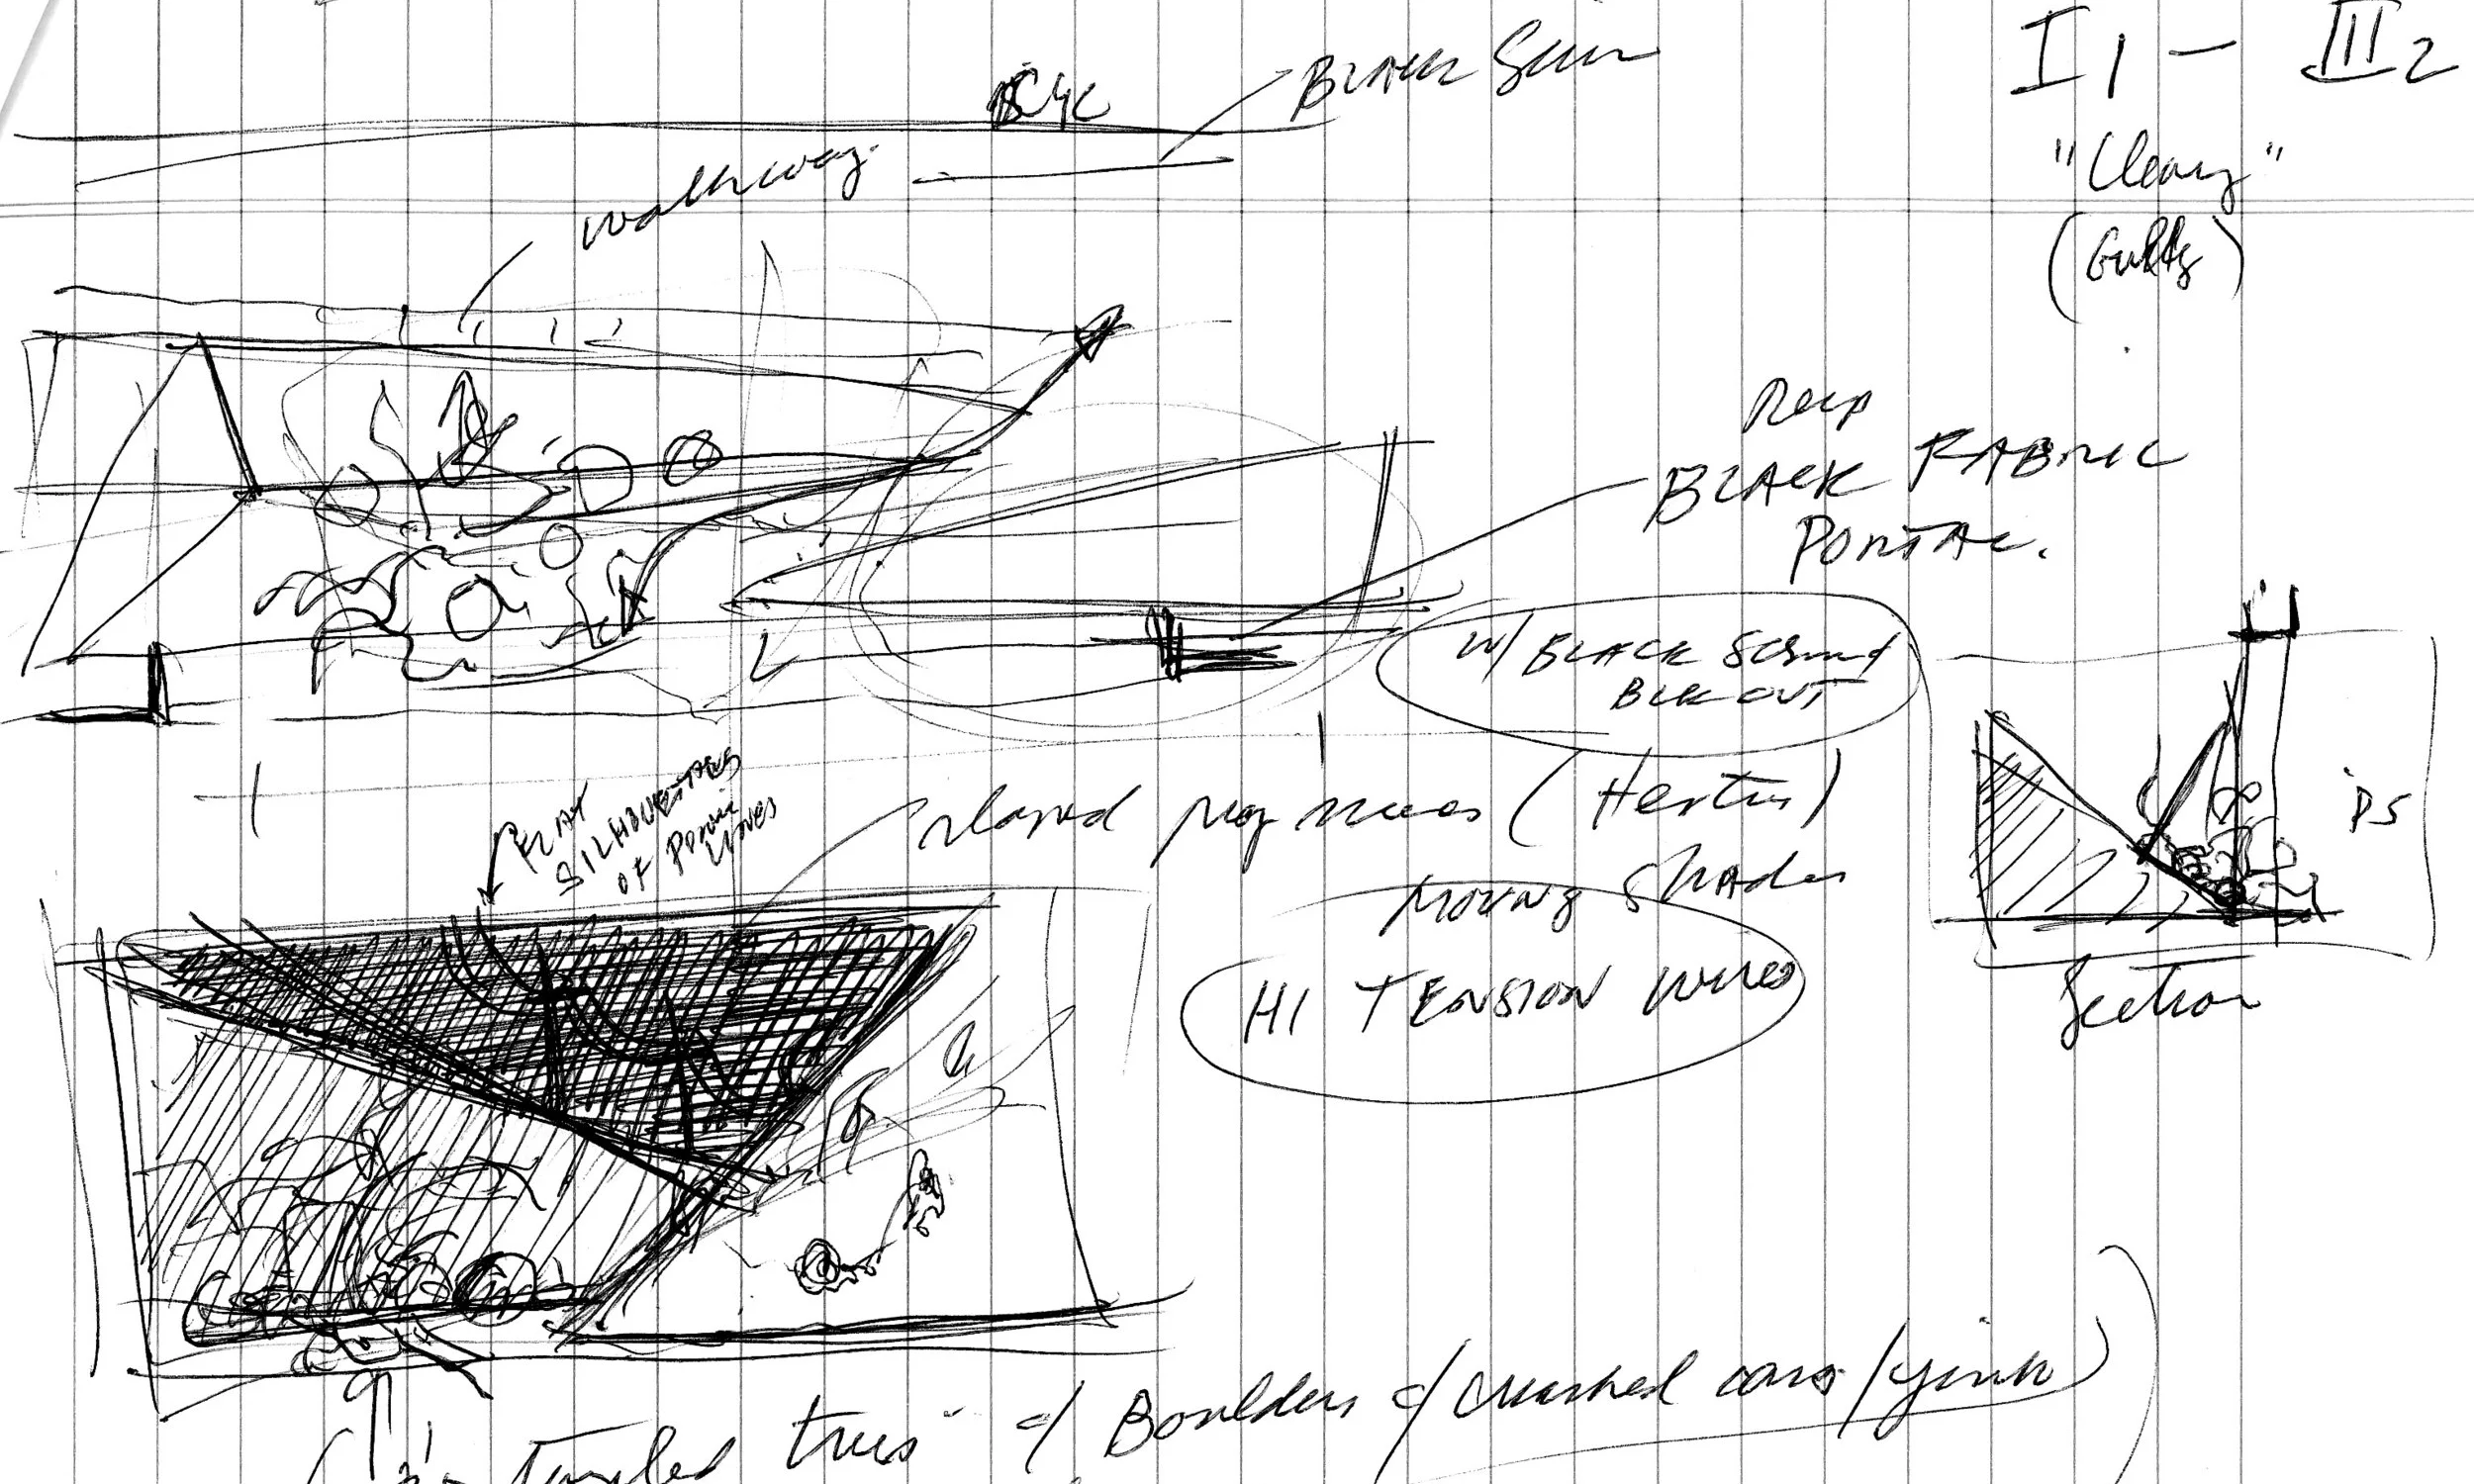 I 1 – III 2
CYC
BLACK Scrim
walkway.
"Clearing"
(Gully)
Deep
BLACK FABRIC
PORTAL.
W/ BLACK SCRIM &
BLK OUT
FLAT
SILHOUETTES
OF POWER
LINES
(Hertus)
Moving Shades
HI TENSION WIRES
Section
DS
Tangled trees" w/ Boulders w/ crushed cars/junk)